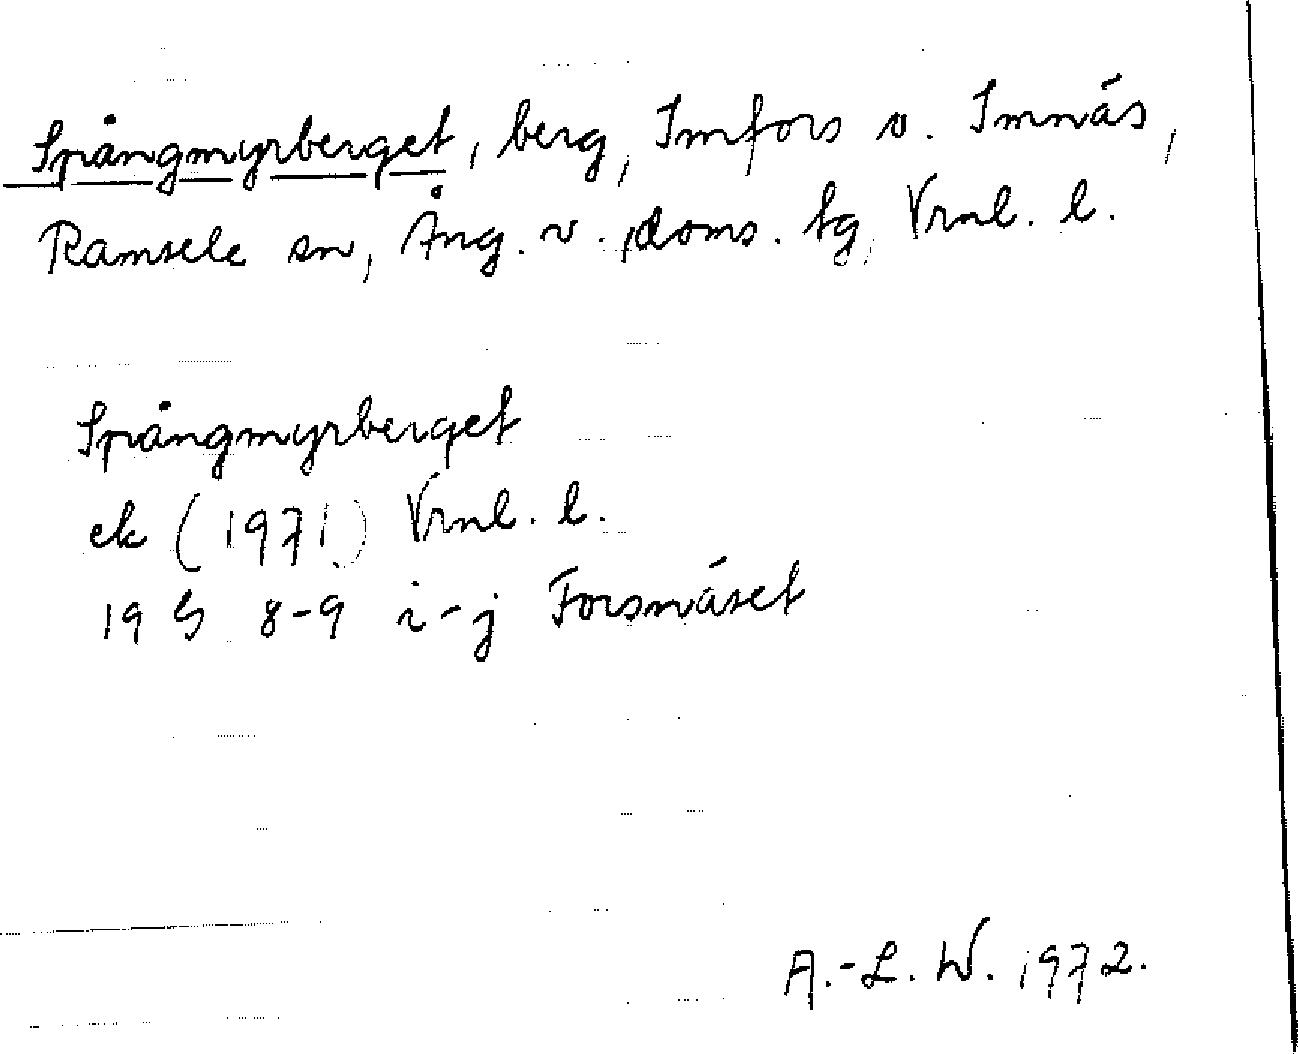 Spångmyrberget, berg, Imfors o. Imnäs,
Ramsele sn, Ång. v. doms. tg, Vrnl. l.
Spångmyrberget
ek (1971) Vrnl. l.
19 G 8-9 i-j Forsnäset
A.-L. W. 1972.